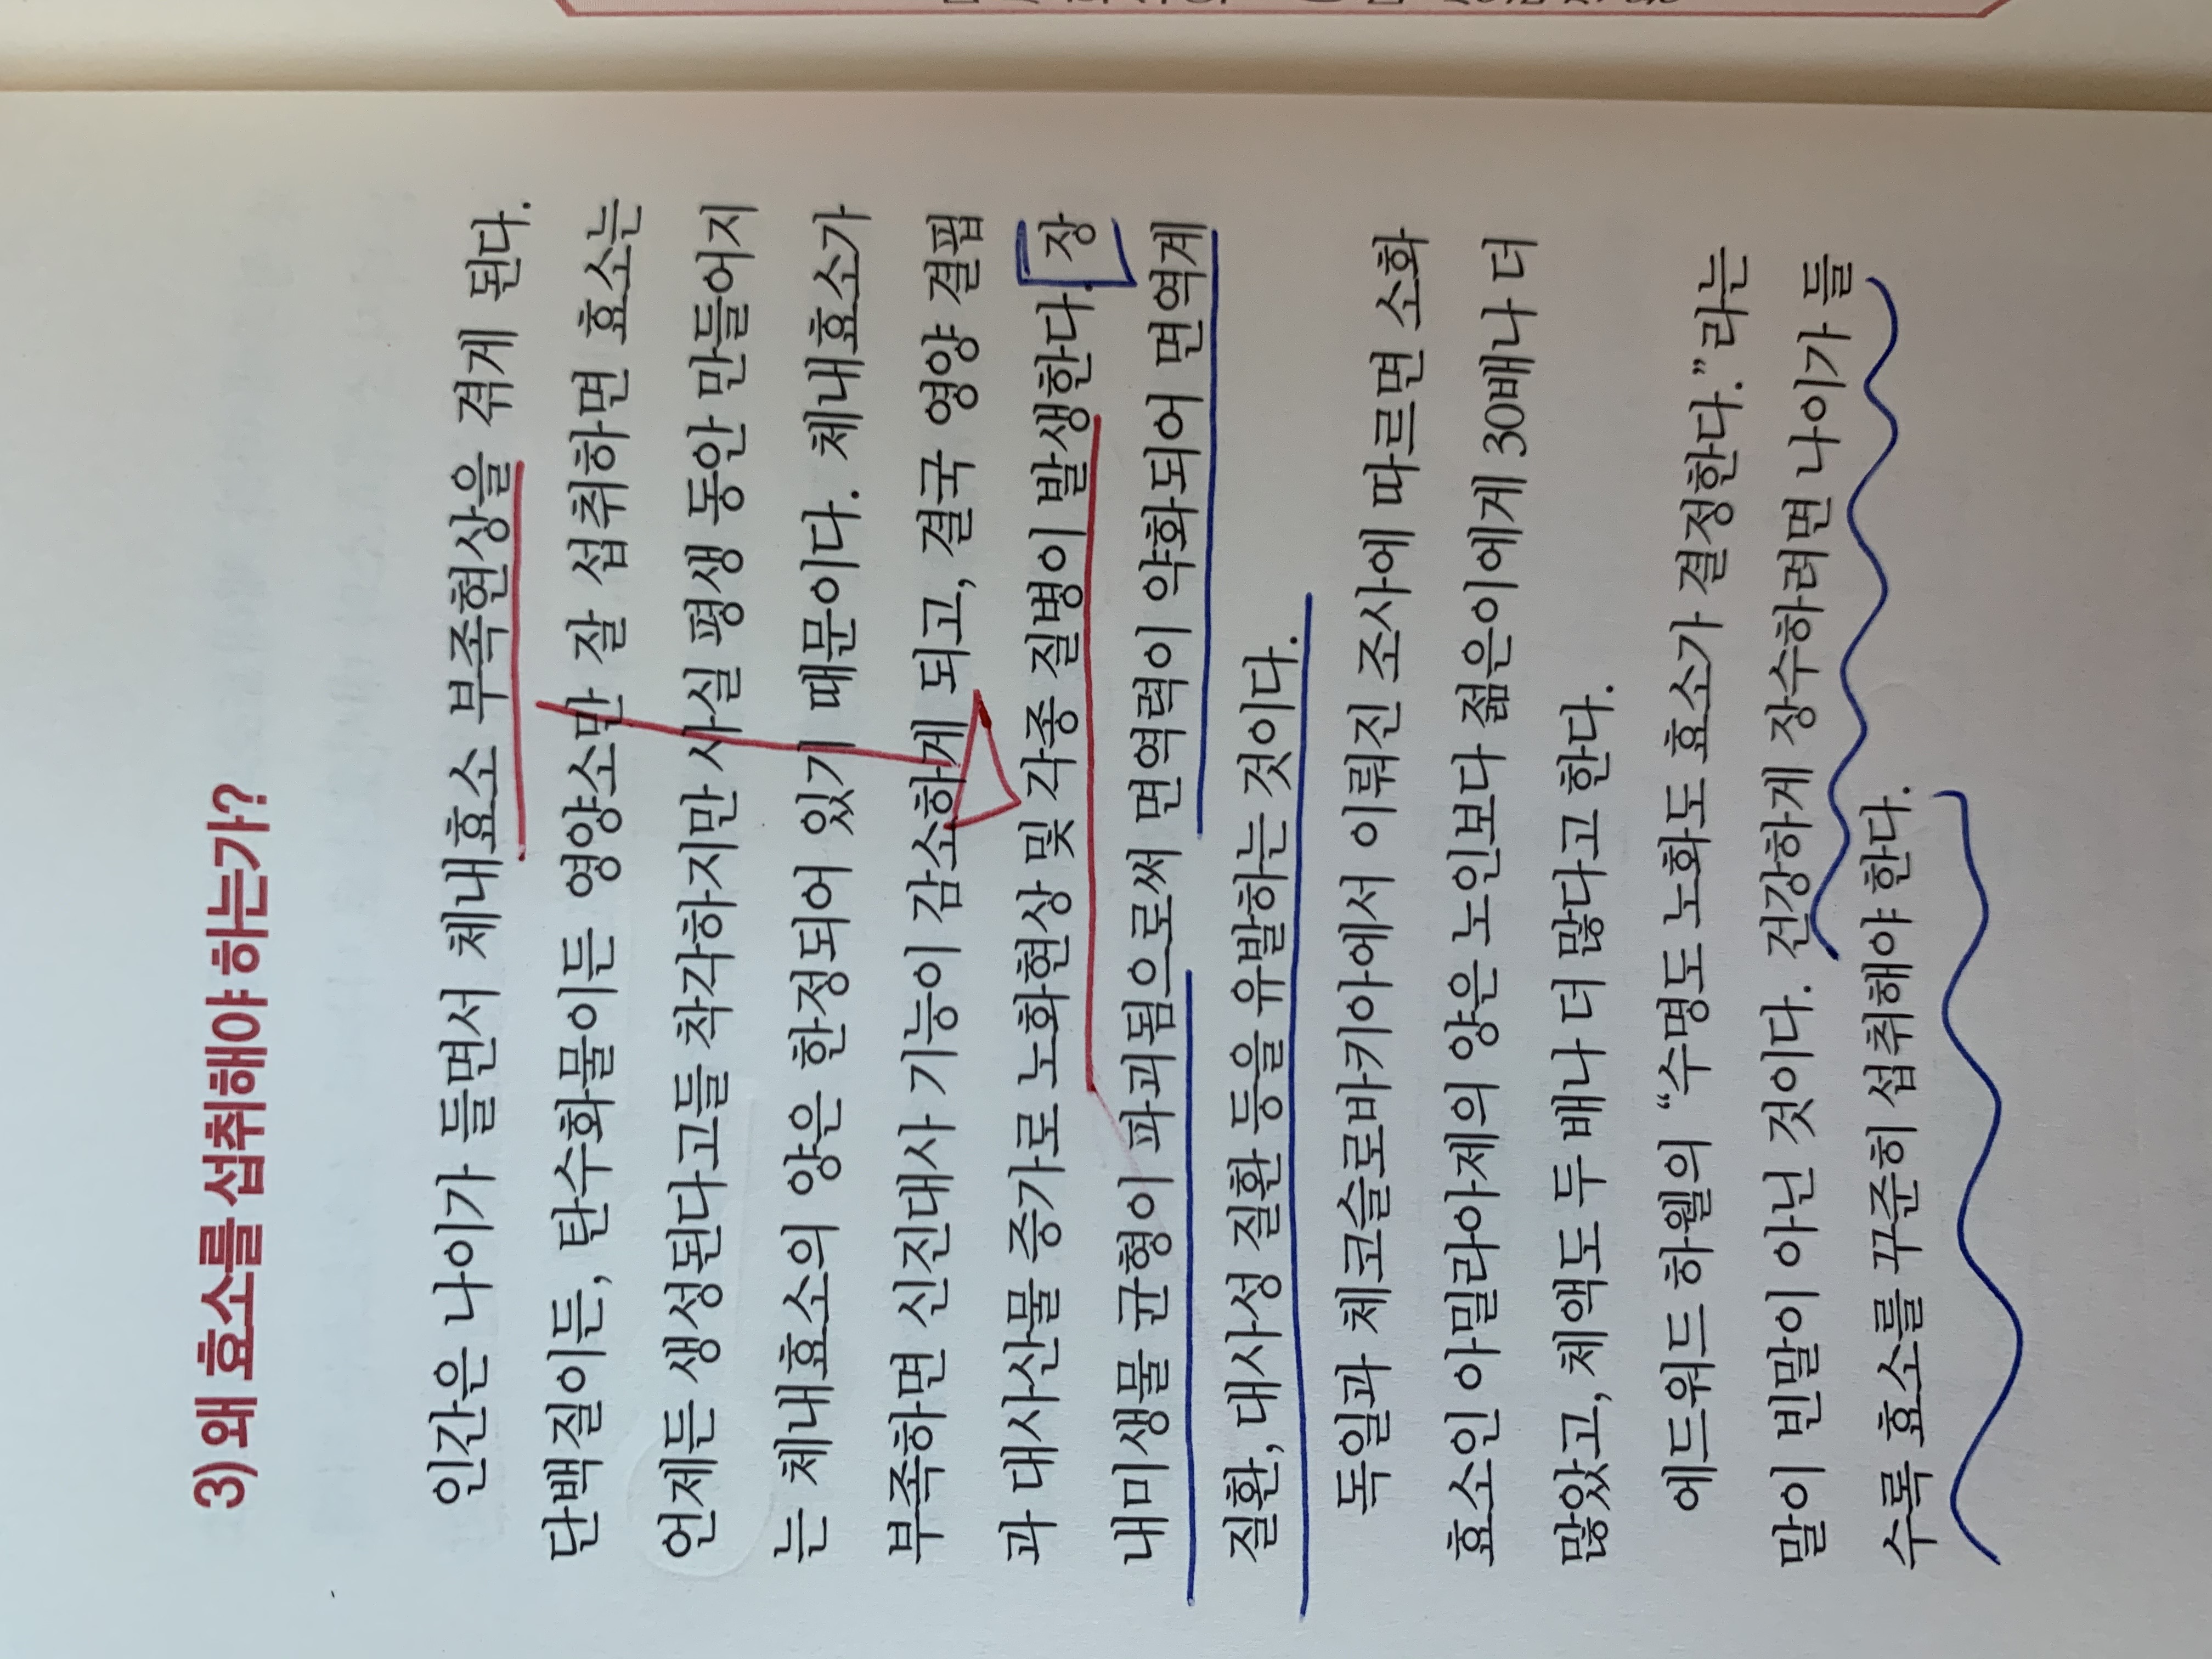 3) 왜 효소를 섭취해야 하는가?
인간은 나이가 들면서 체내효소 부족현상을 겪게 된다.
단백질이든, 탄수화물이든 영양소만 잘 섭취하면 효소는
언제든 생성된다고들 착각하지만 사실 평생 동안 만들어지
는 체내효소의 양은 한정되어 있기 때문이다. 체내효소가
부족하면 신진대사 기능이 감소하게 되고, 결국 영양 결핍
과 대사산물 증가로 노화현상 및 각종 질병이 발생한다. 장
내미생물 균형이 파괴됨으로써 면역력이 약화되어 면역계
질환, 대사성 질환 등을 유발하는 것이다.
독일과 체코슬로바키아에서 이뤄진 조사에 따르면 소화
효소인 아밀라아제의 양은 노인보다 젊은이에게 30배나 더
많았고, 체액도 두 배나 더 많다고 한다.
에드워드 하웰의 “수명도 노화도 효소가 결정한다.”라는
말이 빈말이 아닌 것이다. 건강하게 장수하려면 나이가 들
수록 효소를 꾸준히 섭취해야 한다.